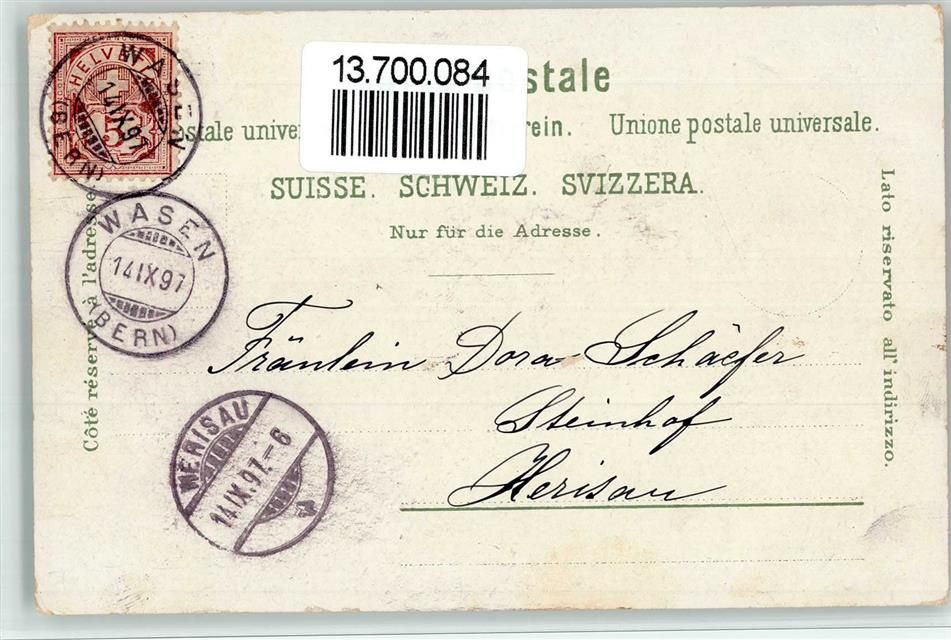 HELVETIA
5
WASEN
14 IX 97
(BERN)
13.700.084
stale
stale univer rein. Unione postale universale.
SUISSE. SCHWEIZ. SVIZZERA.
Nur für die Adresse.
Côté réservé à l'adresse
Lato riservato all' indirizzo.
WASEN
14 IX 97
(BERN)
Fräulein Dora Schäefer
Steinhof
Herisau
HERISAU
14.IX.97.–6